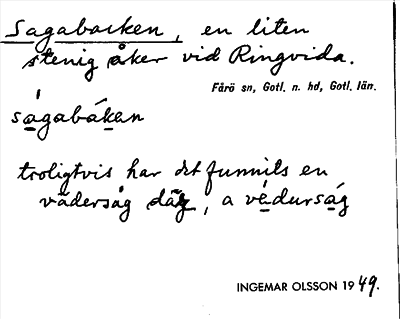 Sagabacken, en liten
stenig åker vid Ringvida.
Fårö sn, Gotl. n. hd, Gotl. län.
sagabáken
troligtvis har det funnits en
vädersåg där, a védurság
INGEMAR OLSSON 1949.